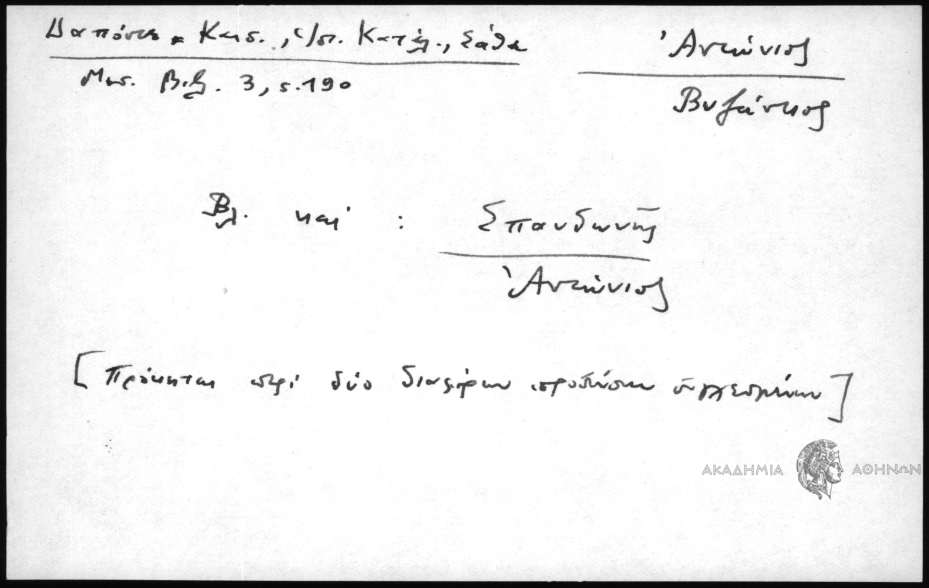 Δαπόντε Κωνσ., Ἱστ. Κατάλ., Σάθα
Μεσ. Βιβ. 3, σ. 190
Ἀντώνιος
Βυζάντιος
Βλ. καὶ : Σπανδωνῆς
Ἀντώνιος
[Πρόκειται περὶ δύο διαφόρων προσώπων συγχεομένων]
ΑΚΑΔΗΜΙΑ ΑΘΗΝΩΝ